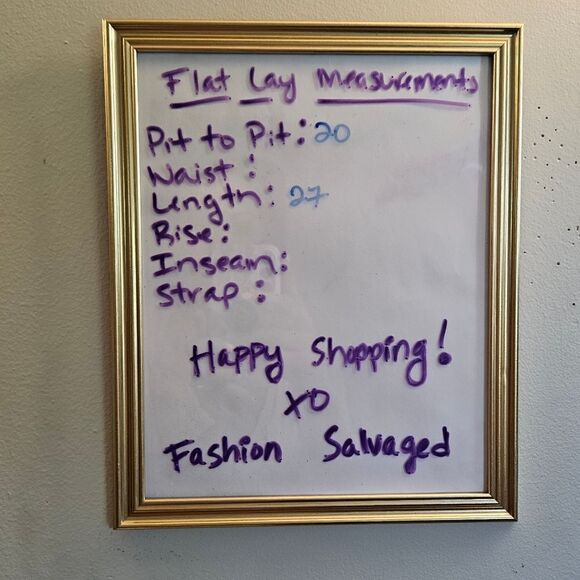 Flat Lay Measurements
Pit to Pit: 20
Waist:
Length: 27
Rise:
Inseam:
Strap:
Happy Shopping!
XO
Fashion Salvaged